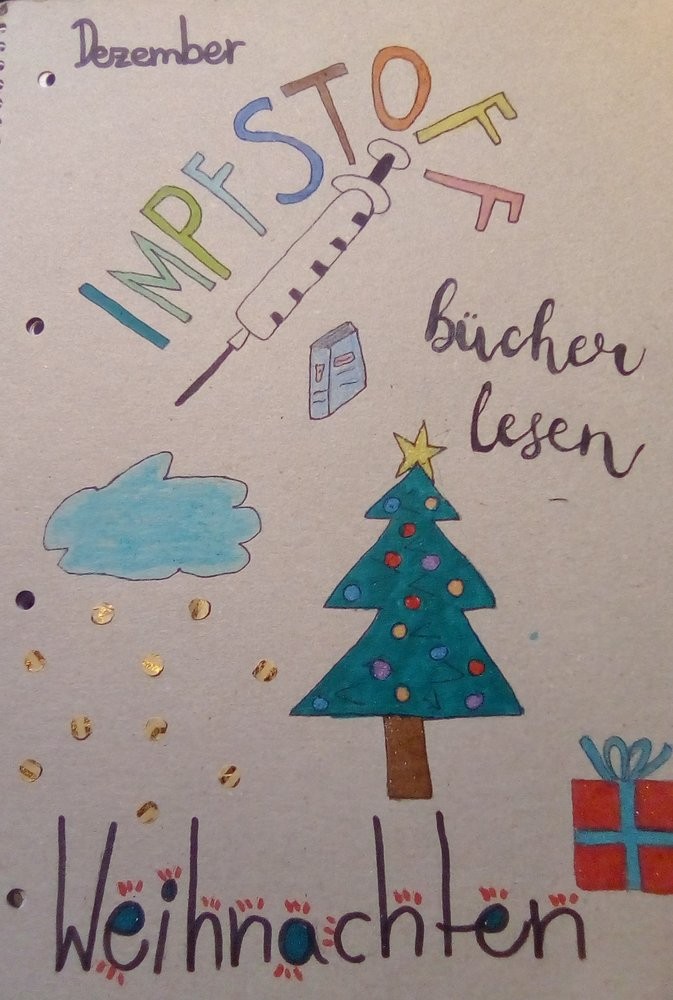 Dezember
IMPFSTOFF
bücher
lesen
Weihnachten